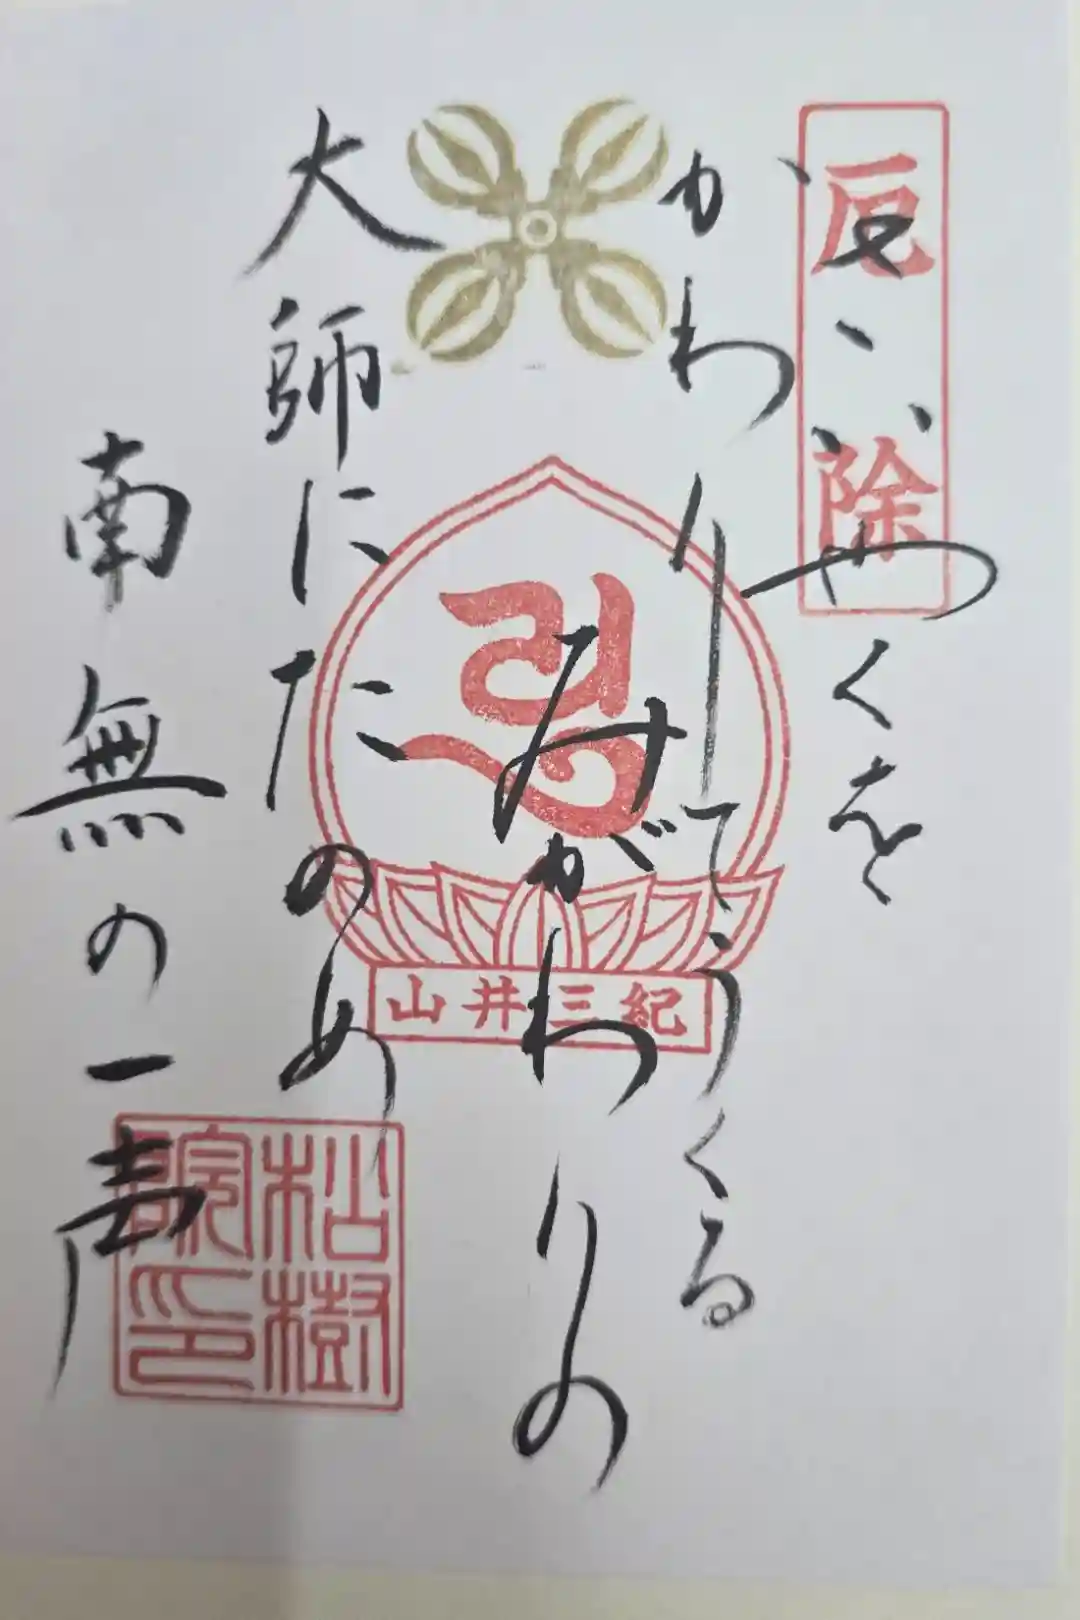 厄除
やくを
かわりてうくる
みがわりの
紀三井山
大師にたのめ
南無の一声
松樹院印